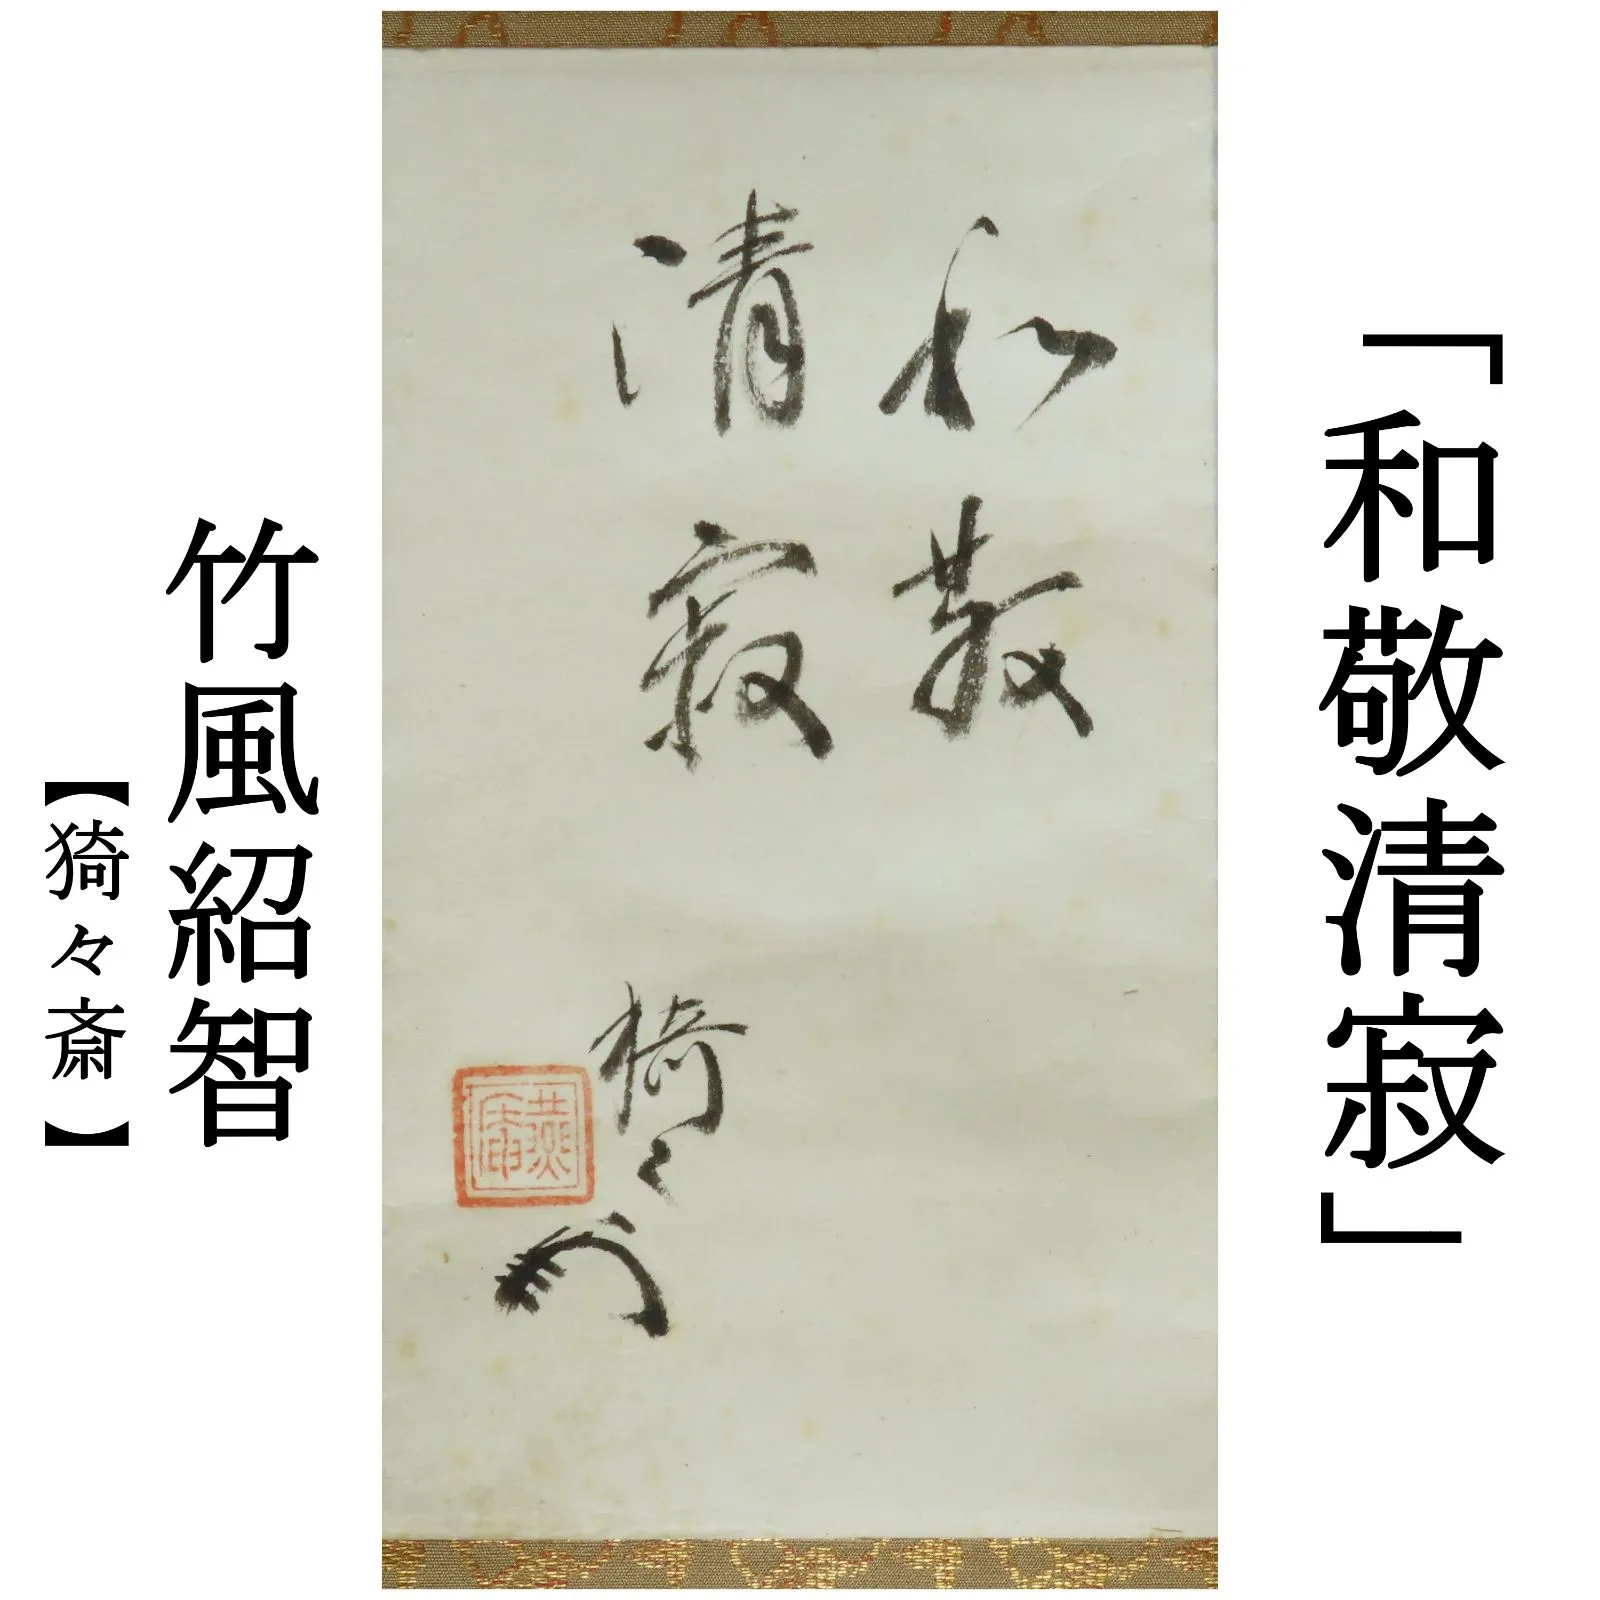 「和敬清寂」
和敬
清寂
猗々
竹風紹智
【猗々斎】